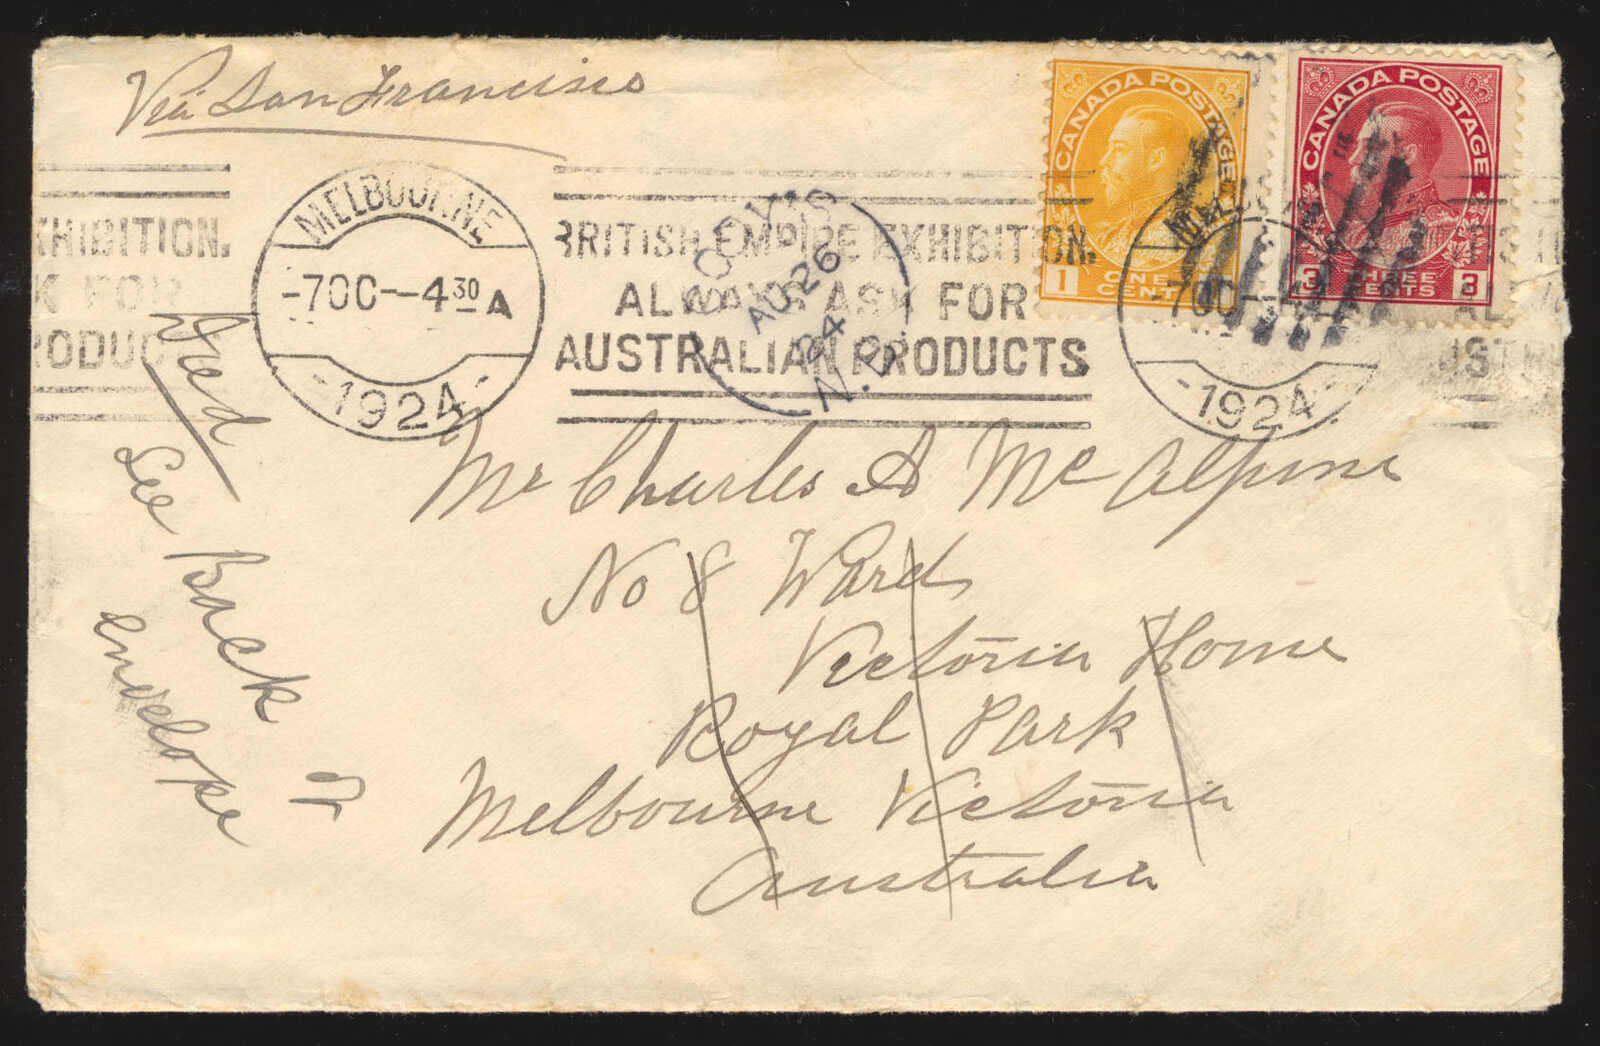 Via San Francisco
CANADA POSTAGE
1 ONE 1
CENT
CANADA POSTAGE
3 THREE 3
CENTS
XHIBITION.
K FOR
RODUC
MELBOURNE
-7OC--430A
-1924-
BRITISH EMPIRE EXHIBITION.
ALWAYS ASK FOR
AUSTRALIAN PRODUCTS
AU 26
24
N.B.
-7OC-
-1924
AL
USTR
Mr Charles A McAlpine
No 8 Ward
Victoria Home
Royal Park
Melbourne Victoria
Australia
Died
See Back
of
Envelope